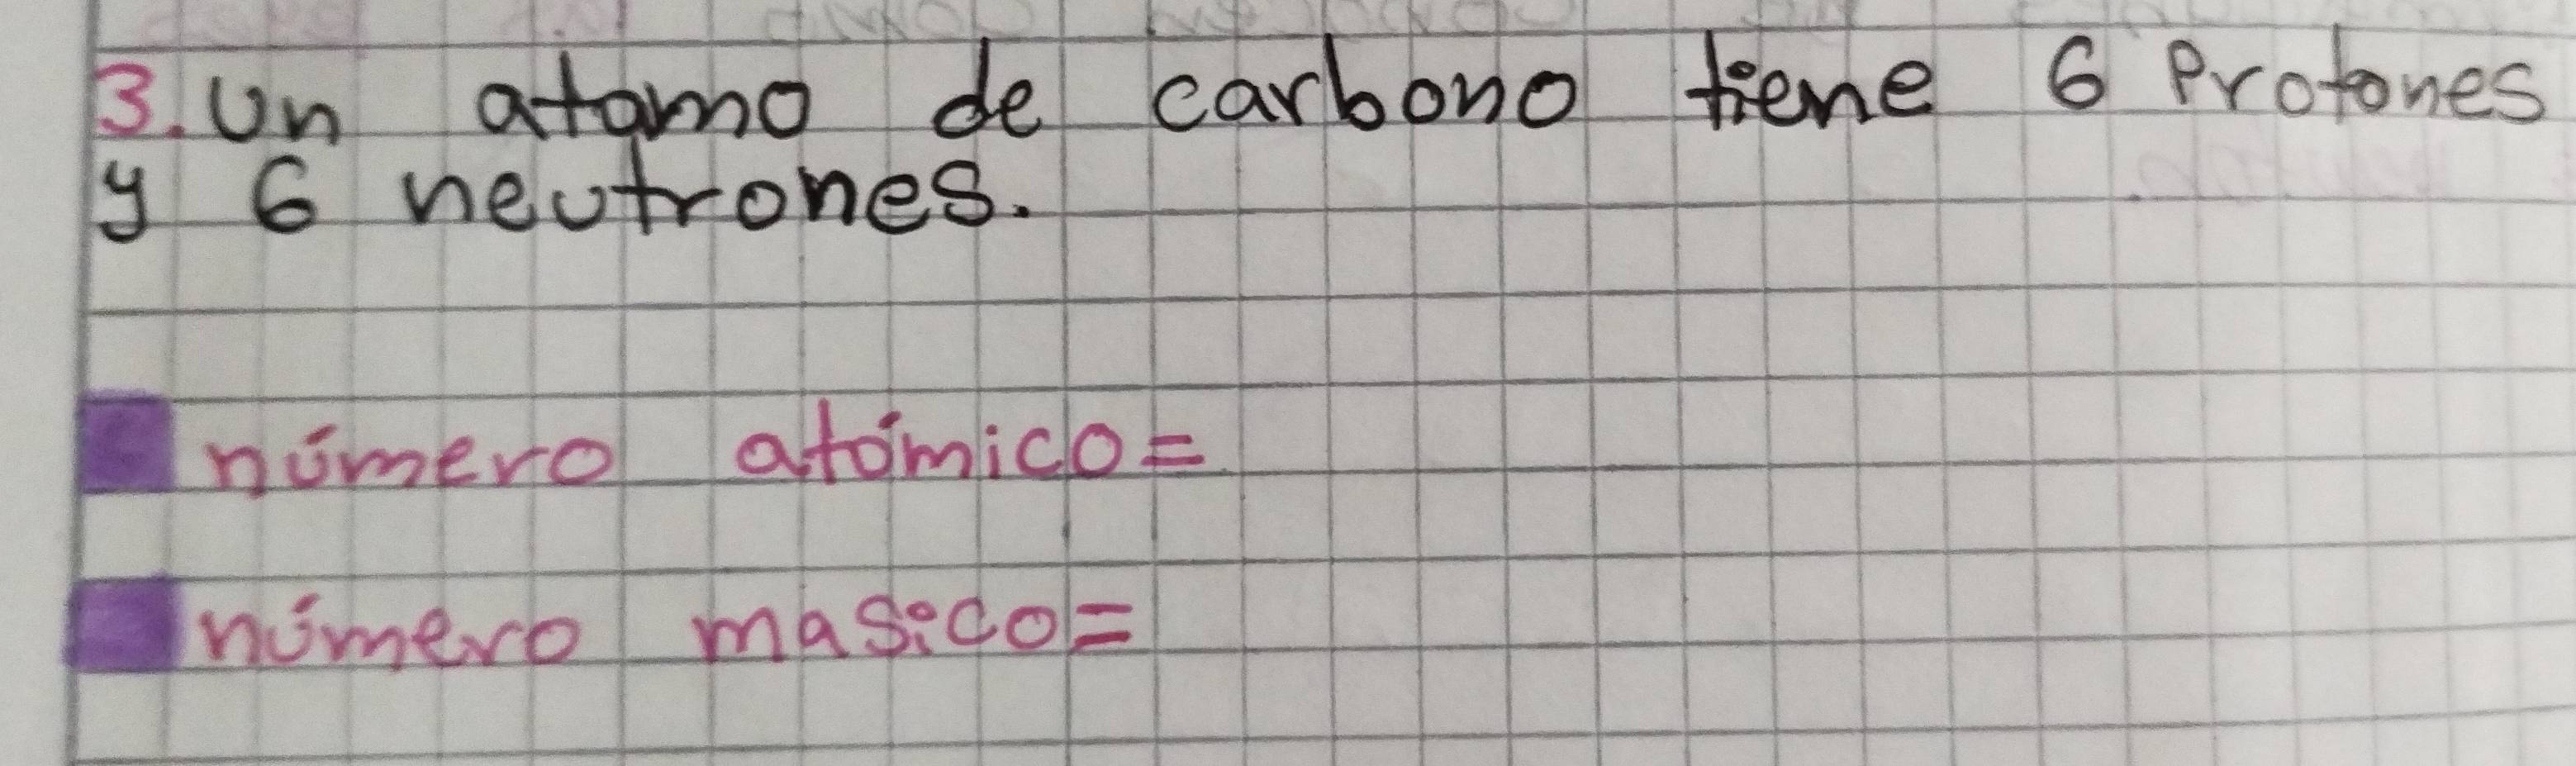 3. Un atamo de carbono tiene 6 Protones
y 6 neutrones.
número atómico=
número masico=